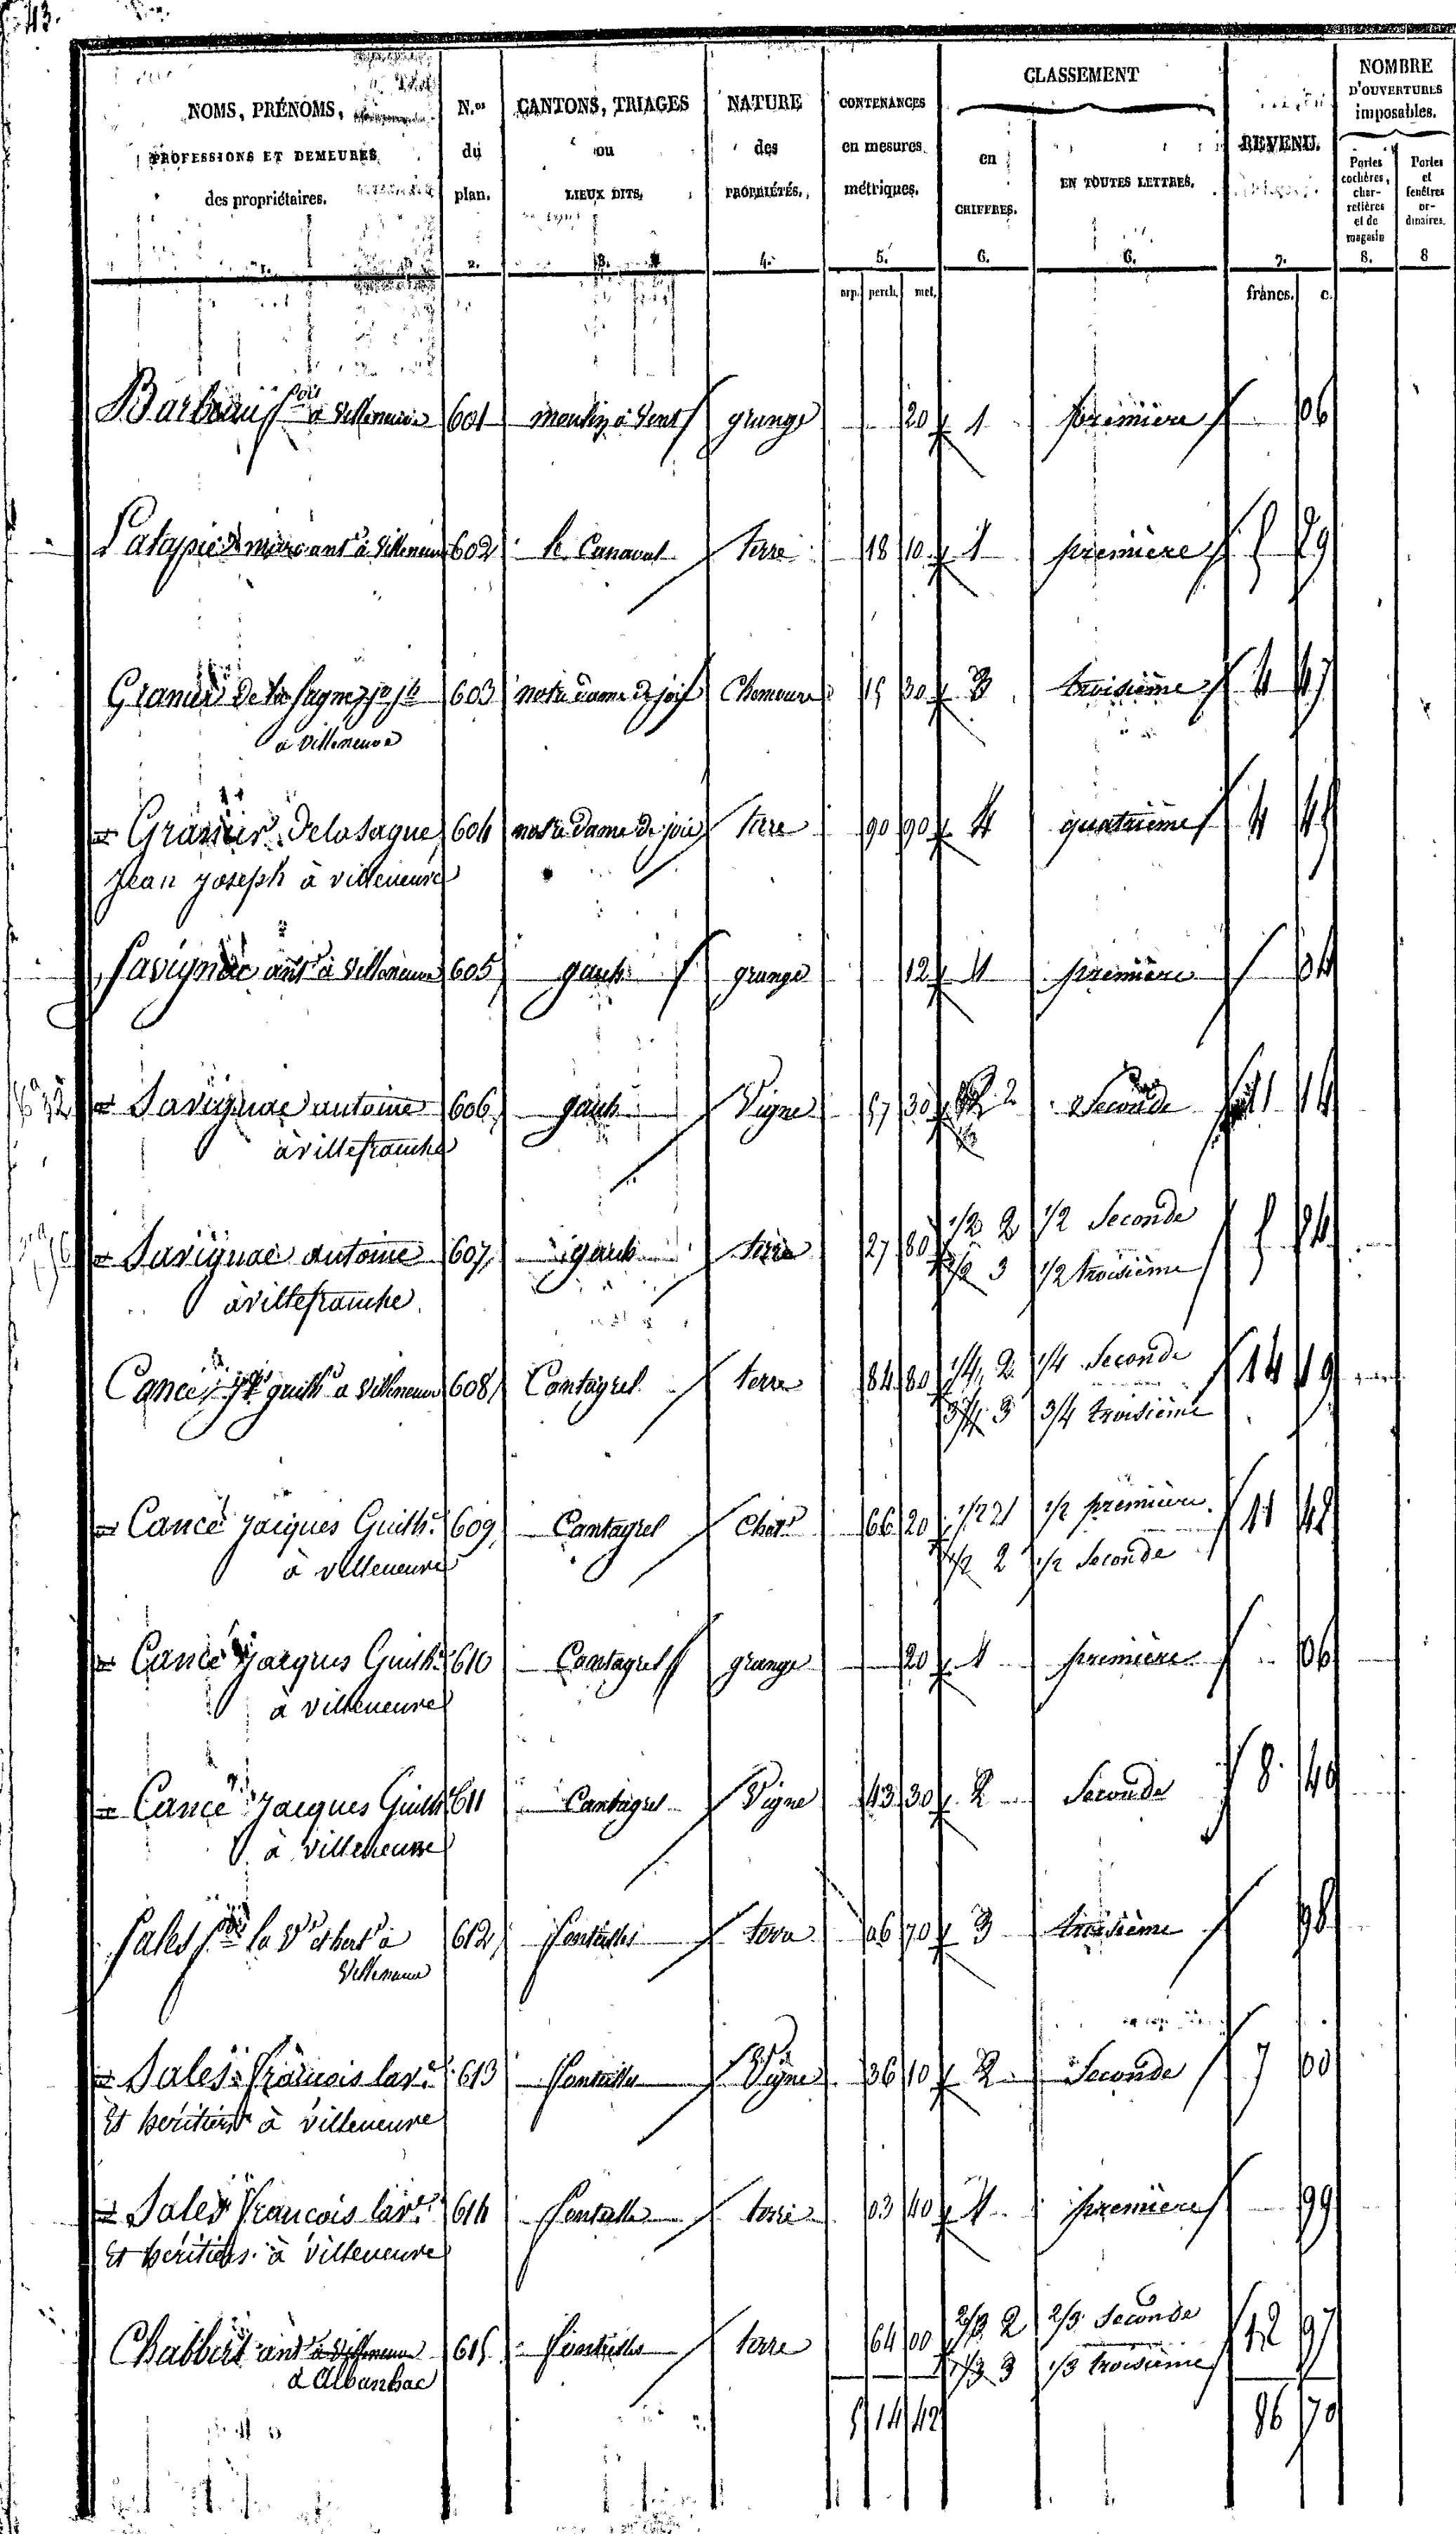 43.
NOMS, PRÉNOMS,
PROFESSIONS ET DEMEURES
des propriétaires.
1.
N.os
du
plan.
2.
CANTONS, TRIAGES
ou
LIEUX DITS.
3.
NATURE
des
PROPRIÉTÉS.
4.
CONTENANCES
en mesures
métriques.
5.
arp. perch. met.
CLASSEMENT
en
CHIFFRES.
6.
EN TOUTES LETTRES.
6.
REVENU.
7.
francs. c.
NOMBRE
D'OUVERTURES
imposables.
Portes
cochères,
char-
retières
et de
magasin
8.
Portes
et
fenêtres
or-
dinaires.
8
à Villeneuve 601 moulin à Vent grange 20 1 première 06
à Villeneuve 602 le Canaval terre 18 10 1 première 5 29
Granier De la Sagne jn jh 603 notre dame de joie 15 30 3 troisième 4 47
à Villeneuve
Granier Delasagne 604 notre Dame de joie terre 90 90 4 quatrième 4 45
Jean Joseph à Villeneuve
Savignac ant.e à Villeneuve 605 grange 12 1 première 04
Savignac antoine 606 Vigne 57 30 2 Seconde 11 14
à Villefranche
Savignac antoine 607 terre 27 80 1/2 2 1/2 Seconde 5 24
1/2 3 1/2 troisième
à Villefranche
Cance guilh.e à Villeneuve 608 Cantagrel terre 84 80 1/4 2 1/4 Seconde 14 19
3/4 3 3/4 troisième
Cance Jacques Guilh.e 609 Cantagrel 66 20 1/2 1 1/2 première 11 42
à Villeneuve 1/2 2 1/2 Seconde
Cance Jacques Guilh.e 610 Cantagrel grange 20 1 première 06
à Villeneuve
Cance Jacques Guilh.e 611 Cantagrel Vigne 43 30 2 Seconde 8 40
à Villeneuve
Sales la V.e et hert.s à 612 terre 06 70 3 troisième 98
Villeneuve
Sales François la v.e 613 Vigne 36 10 2 Seconde 7 00
Et heritiers à Villeneuve
Sales François la v.e 614 terre 03 40 1 première 99
Et heritiers à Villeneuve
Chabbert ant.e à Villeneuve 615 terre 64 00 2/3 2 2/3 Seconde 12 97
à Albanhac 1/3 3 1/3 troisième
5 14 42 86 70